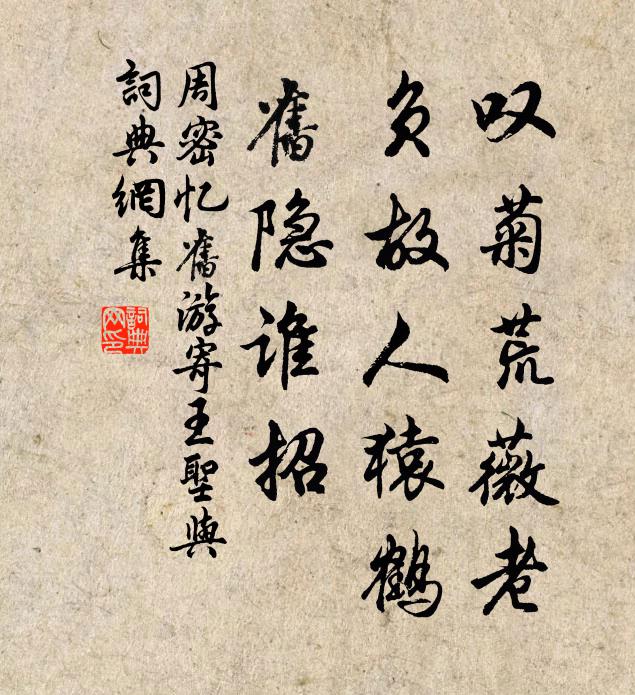 叹菊荒薇老
负故人猿鹤
舊隐谁招
周密忆舊游寄王聖與
詞典網集
詞典網印